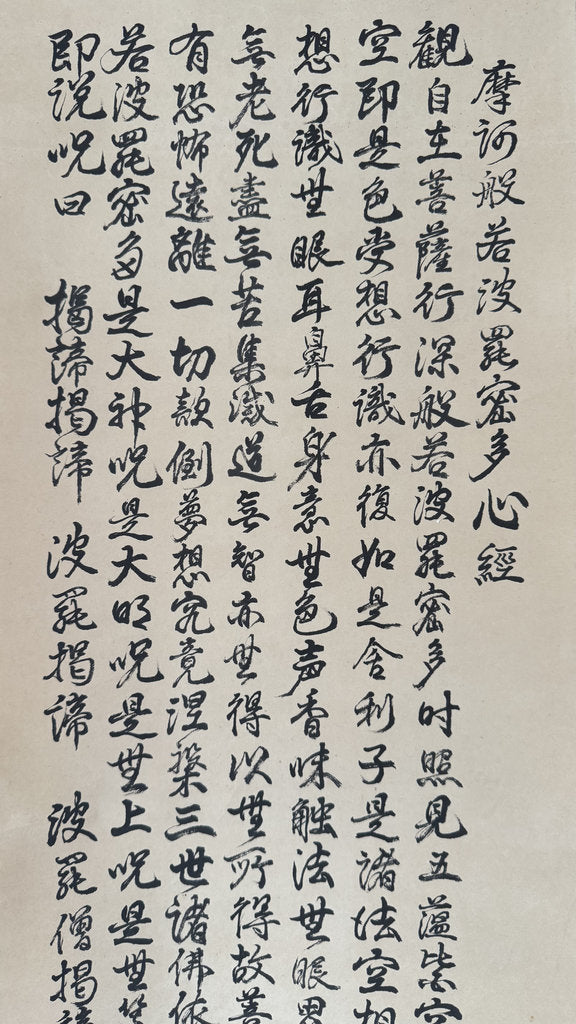 摩訶般若波羅密多心經
觀自在菩薩行深般若波羅密多时照見五蕴皆空
空即是色受想行識亦復如是舍利子是諸法空相
想行識無眼耳鼻舌身意無色声香味触法無眼界
無老死盡無苦集滅道無智亦無得以無所得故菩
有恐怖遠離一切颠倒夢想究竟涅槃三世諸佛依
若波羅密多是大神呪是大明呪是無上呪是無等
即説呪曰 揭諦揭諦 波羅揭諦 波羅僧揭諦